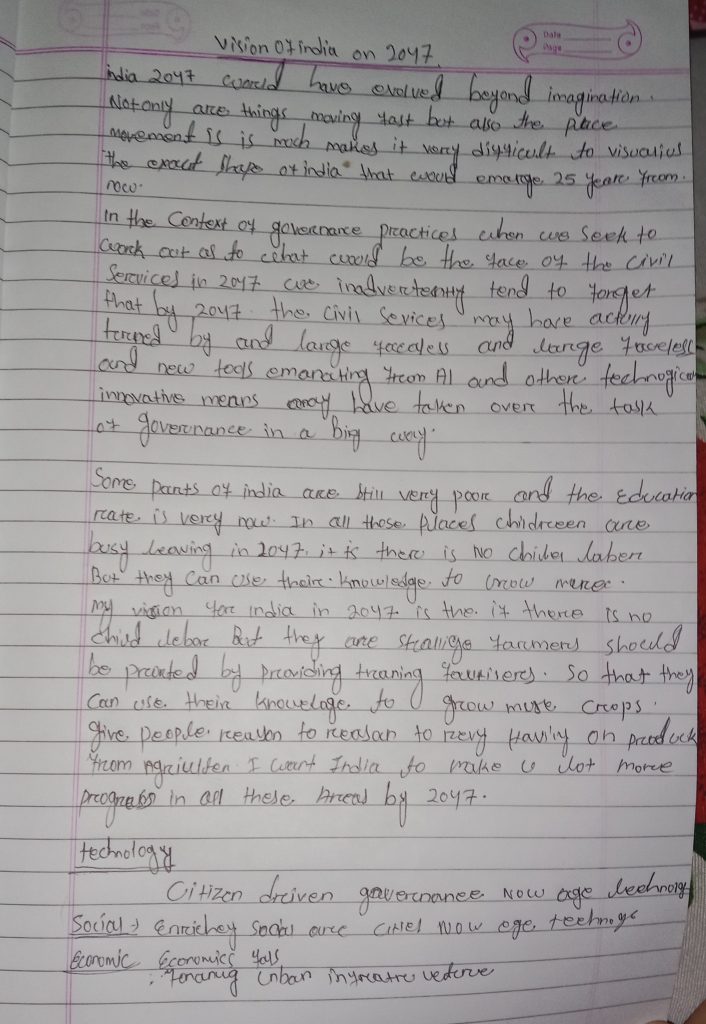 Date
Page
Vision Of india on 2047.
india 2047 would have evolved beyond imagination.
Not only are things moving fast but also the place
movement is is much makes it very difficult to
the exact shape of india that would emarge 25 years from.
now.
In the Context of governance practices when we seek to
work out as to what would be the face of the civil
Services in 2047 we tend to forget
that by 2047. the civil Sevices may have
turned by and large faceless and large faceless
and new tools emanating from AI and other
innovative means may have taken over the task
of governance in a Big way.
Some parts of india are still very poor and the Education
rate is very now. In all those places childreen are
busy in 2047. it is there is No
But they can use their knowledge to
my vision for india in 2047 is the. if there is no
But they are farmers should
be by providing traning So that they
can use their to grow more crops.
give people reason to to on
from I want India to make a lot more
progress in all these Areas by 2047.
technology
Citizen driven governance Now age
Social → social are cities Now age
Economic Economics
urban